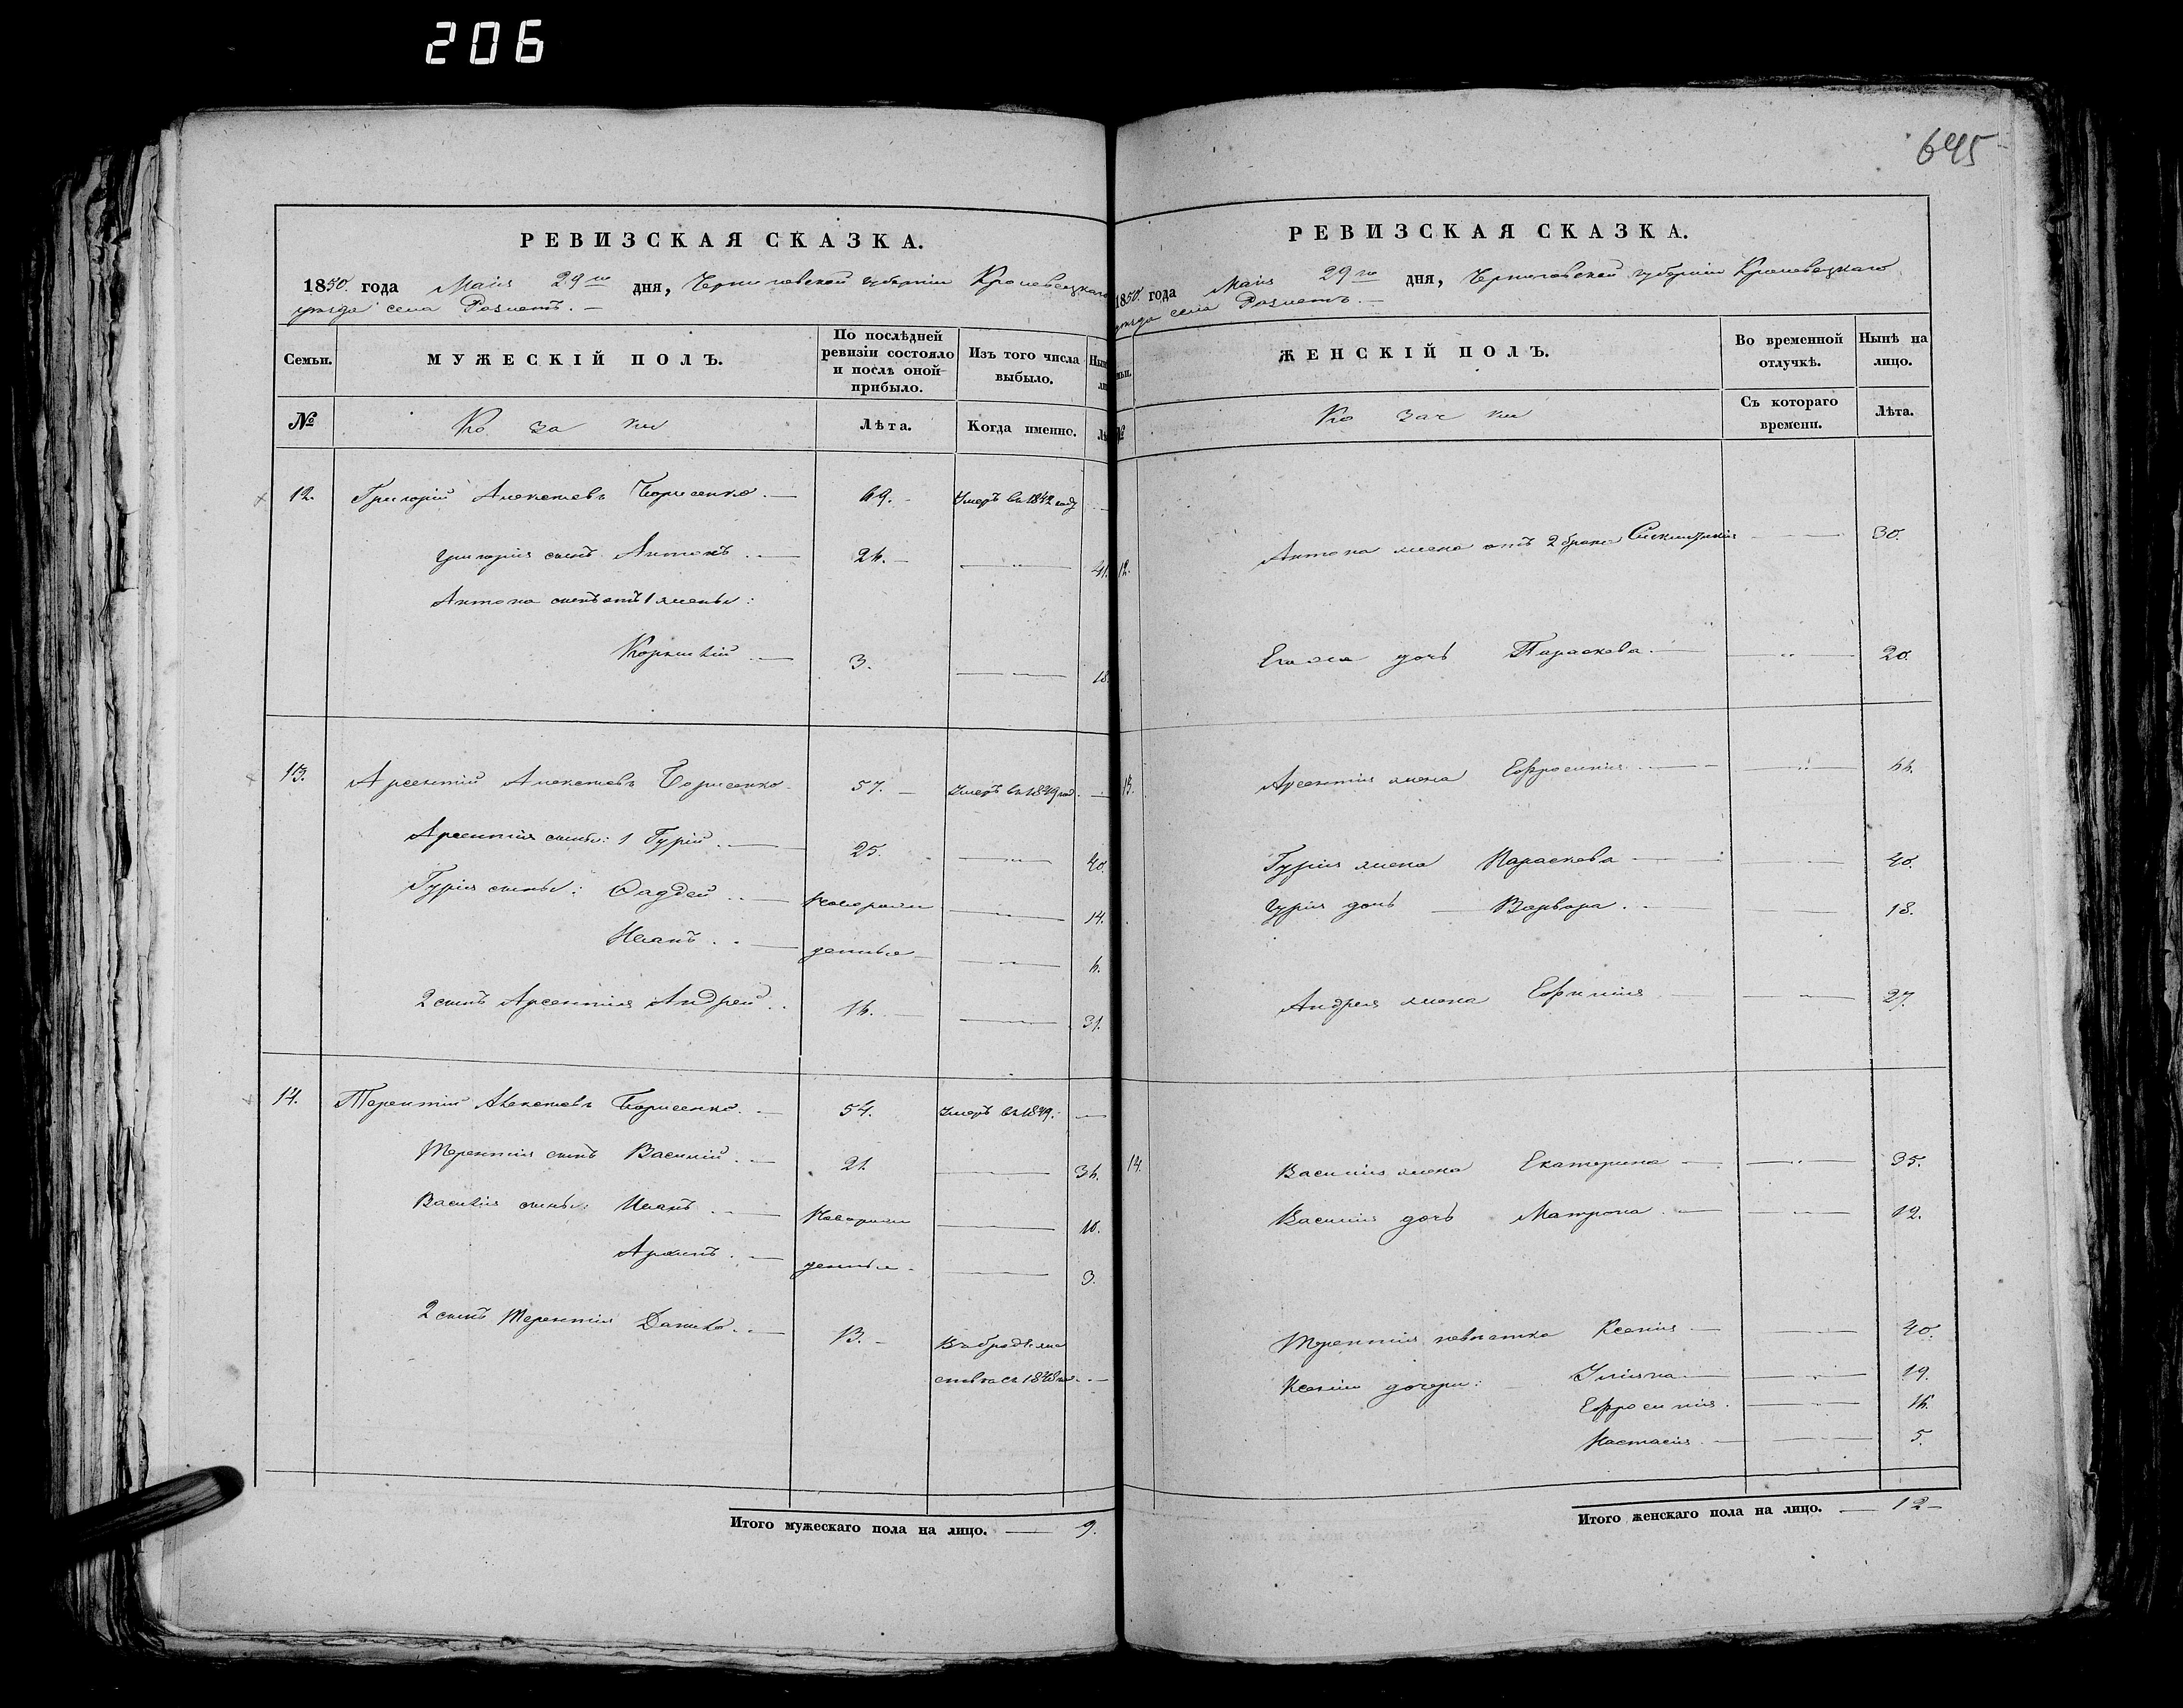 206
645
РЕВИЗСКАЯ СКАЗКА.
1850. года Маія 29го дня, Черниговской губерніи Кролевецкаго
уѣзда села Разлетъ. —
Семьи. МУЖЕСКІЙ ПОЛЪ. По послѣдней ревизіи состояло и послѣ оной прибыло. Изъ того числа выбыло.
№ Козаки Лѣта. Когда именно.
12. Григорій Алексѣевъ Борисенко. — 69. — Умеръ въ 1842 году —
Григорія сынъ Антонъ. — 26. — 41.
Антона сынъ отъ 1 жены:
Корнилій — 3. 18.
13. Арсентій Алексѣевъ Борисенко. 57. — Умеръ въ 1849 год. —
Арсентія сыны: 1 Гурій. — 25. 40.
Гурія сыны: Фаддей — новорож 14.
Иванъ — денные 6.
2 сынъ Арсентія Андрей 16. — 31.
14. Терентій Алексѣевъ Борисенко. — 54. Умеръ въ 1849. —
Терентія сынъ Василій. — 21. 36.
Василія сыны: Иванъ — Новорож 10.
Архипъ. — денные. 3.
2 сынъ Терентія Данило. — 13. — Въ бродяже
ствѣ съ 1848 го —
Итого мужескаго пола на лицо. — 9.
РЕВИЗСКАЯ СКАЗКА.
1850. года Маія 29го дня, Черниговской губерніи Кролевецкаго
уѣзда села Разлетъ. —
ЖЕНСКІЙ ПОЛЪ. Во временной отлучкѣ. Нынѣ на лицо.
№ Козачки Съ котораго времени. Лѣта.
12. Антона жена отъ 2 брака 30.
Егожъ дочь Параскева — 20.
13. Арсентія жена Ефросинія — 66.
Гурія жена Параскева — 40.
Гурія дочь — Варвара. — 18.
Андрея жена Ефимія — 27.
14. Василія жена Екатерина — 35.
Василія дочь Матрона. — 12.
Терентія невѣстка Ксенія — 40.
Ксеніи дочери: Уліяна — 19.
Ефросинія. 16.
Настасія. — 5.
Итого женскаго пола на лицо. — 12 —